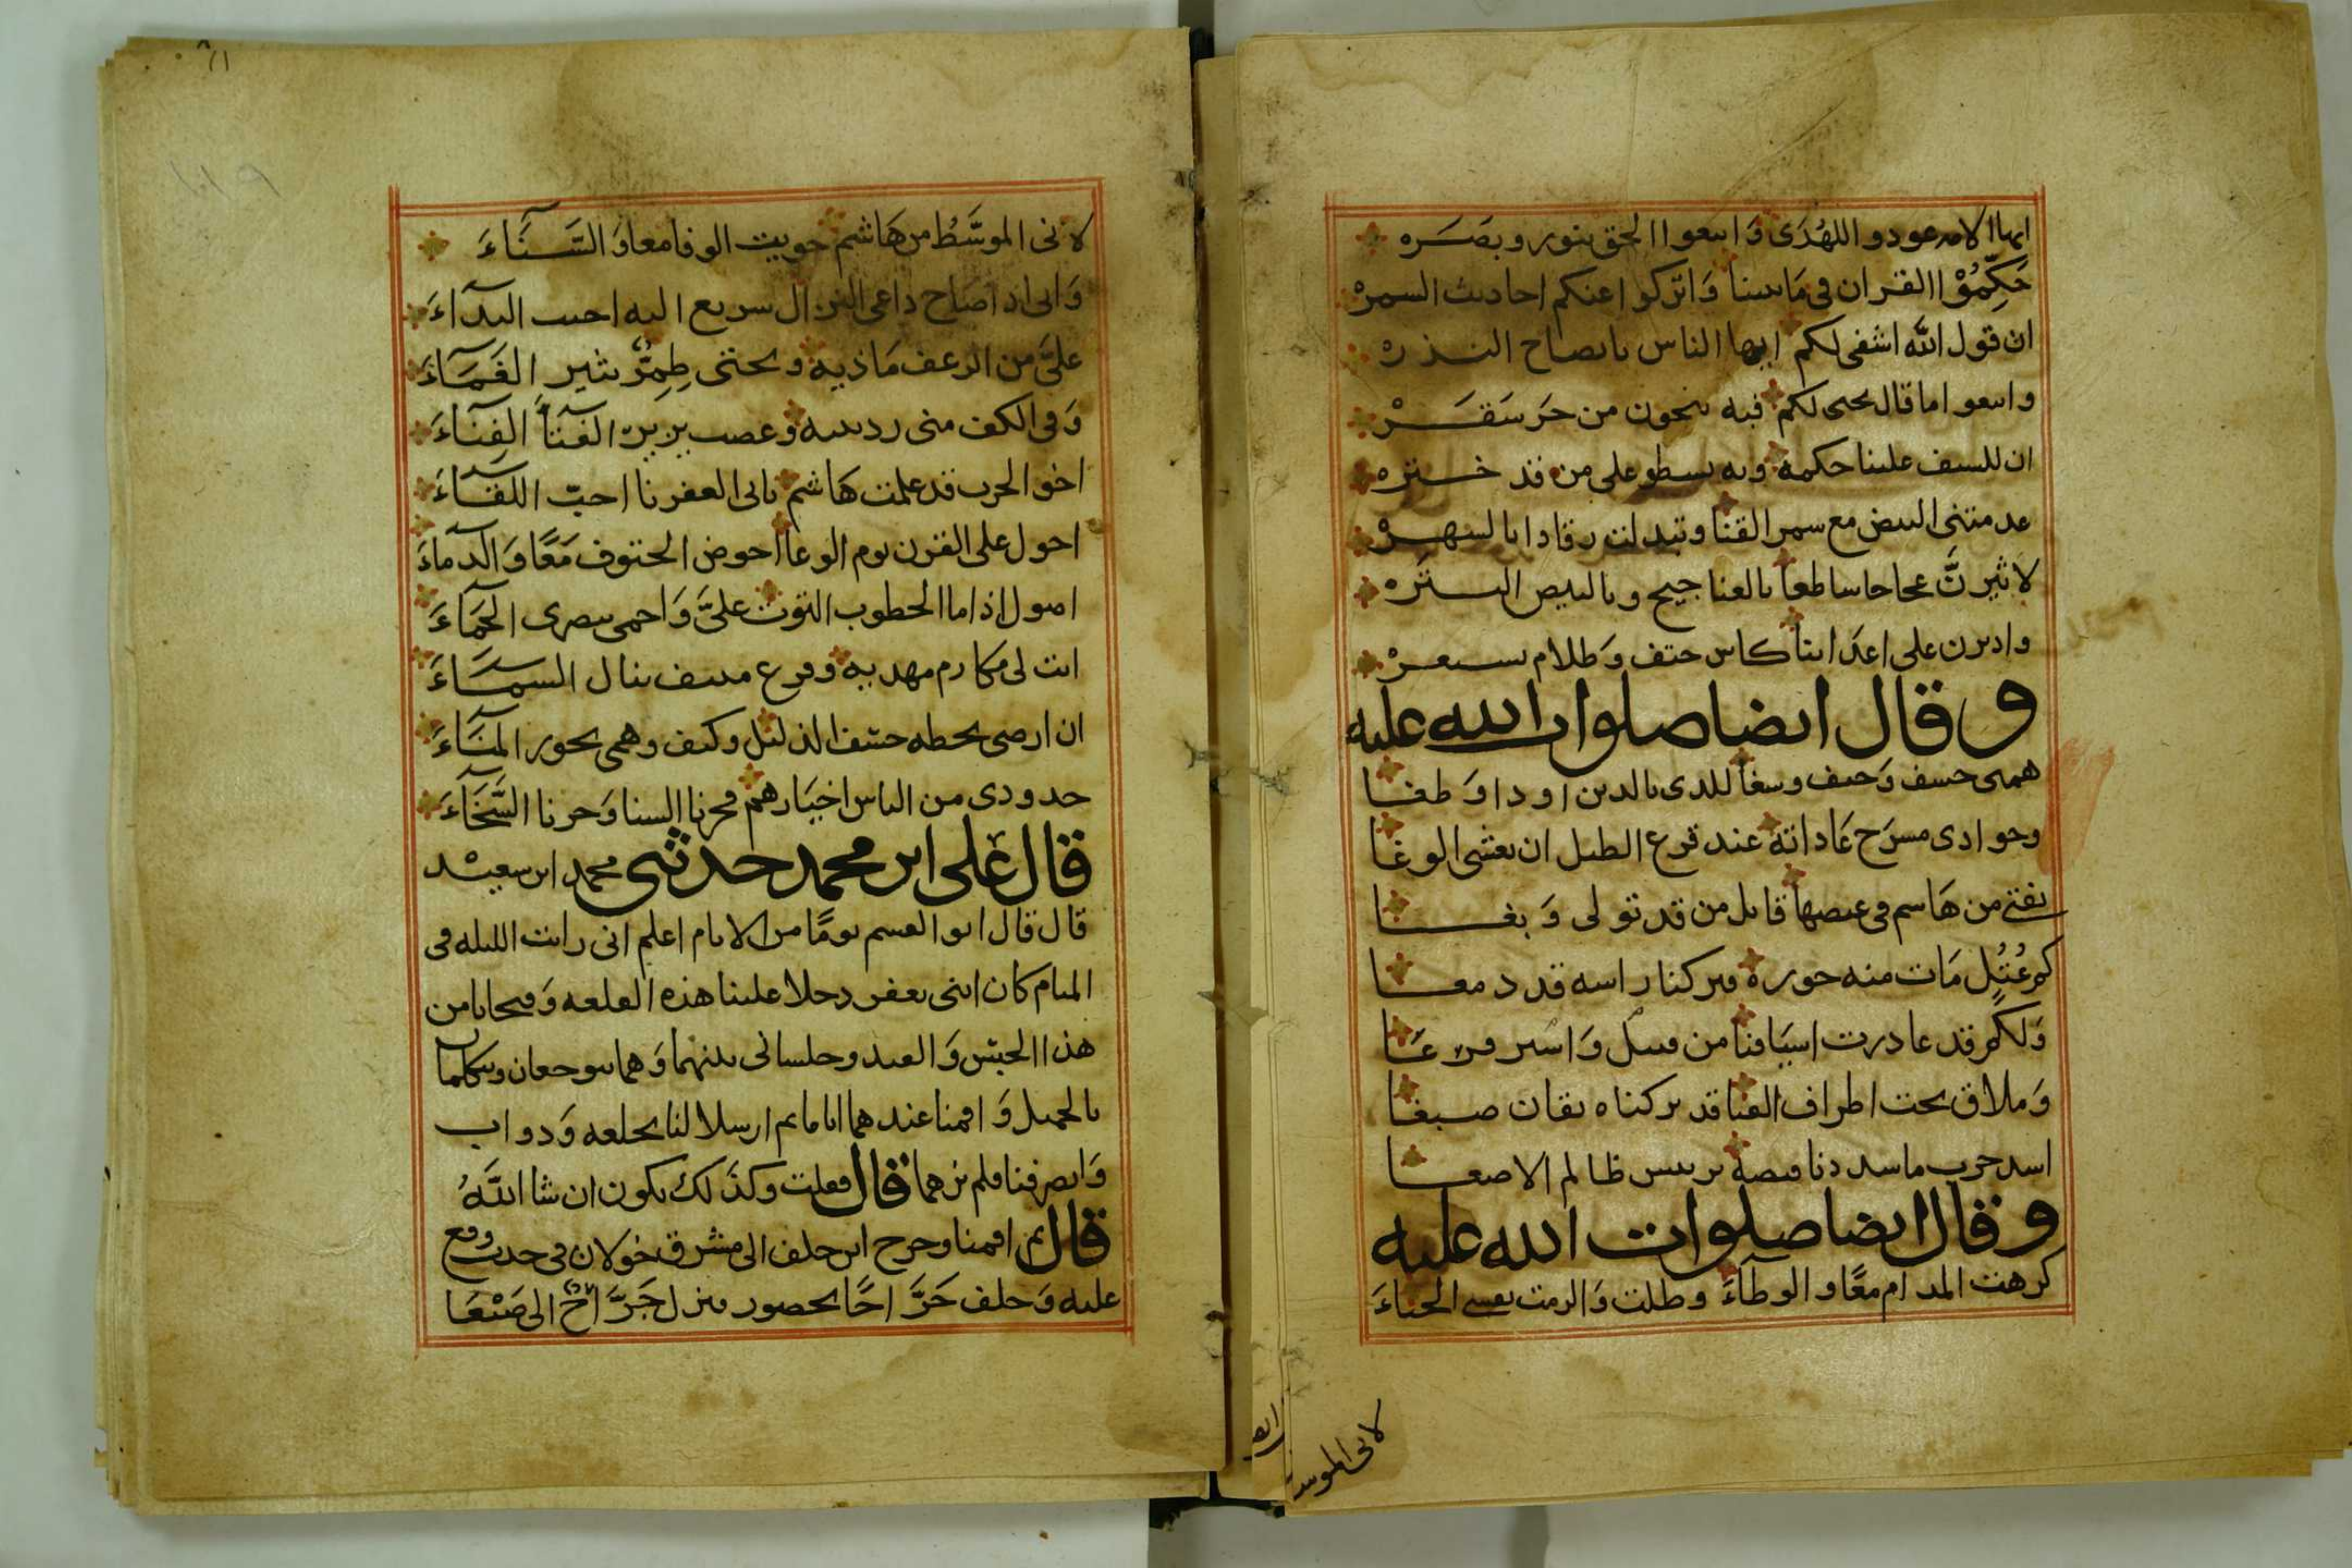 ايها الامه عودوا للهدى واتبعوا الحق بنور وبصره
حكموا القران في ما بيننا واتركوا عنكم احاديث السمر
ان قول الله اشفى لكم ايها الناس بايصاح النذره
واتبعوا ما قال يحيى لكم فبه تنجون من حر سقر
ان للسيف علينا حكمه وبه يسطو على من قد ختره
عدمتني البيض مع سمر القنا وتبدلت رقادا بالسهر
لاثيرن عجاجا ساطعا بالعناجيج وبالبيض البتره
واديرن على اعدائنا كاس حتف وطلام يستعر
وقال ايضا صلوات الله عليه
همتي حسف وحتف وسغا للذي بالدين اودا وطغا
وجوادي مسرح عاداته عند قرع الطبل ان يغشى الوغا
بفتى من هاشم في عيصها قاتل من قد تولى وبغا
كم عتل مات منه جوره فتركنا راسه قد دمغا
ولكم قد غادرت اسيافنا من قتيل واسير فرغا
وملاق تحت اطراف القنا قد تركناه بقان صبغا
اسد حرب ما سددنا قبضة بربيس ظالم الا صغا
وقال ايضا صلوات الله عليه
كرهت المدام معا والوطاء وطلت والزمت نفسي الحياء
لاني الموسط
لاني الموسط من هاشم حويت الوفا معا والسناء
واني اذا صاح داعي النزال سريع اليه احب النداء
علي من الزعف ماذيه وتحتي طمر يثير الغماء
وفي الكف مني ردينيه وعصب يزين الفتا الفناء
اخو الحرب قد علمت هاشم باني لعفرنا احب اللقاء
احول على القرن يوم الوغا احوض الحتوف معا والدماء
اصول اذا ما الخطوب التوت علي واحمي بنصري الحماء
ابت لي مكارم مهديه وفرع منيف ينال السماء
ان ارضى بخطه حسف الذليل وكيف وهمي يحوز المناء
جدودي من الناس اخيارهم فحزنا السنا وحزنا السخاء
قال علي ابن محمد حدثني محمد ابن سعيد
قال قال ابو القسم يوما من الايام اعلم اني رايت الليله في
المنام كان ابني يعفر دخلا علينا هذه القلعه وفتحا بابا من
هذا الحبس والقيد وجلسا بيننا وهما يتوجعان ويتكلمان
بالجميل واقمنا عندهما اياما ثم ارسلا لنا بخلعه ودواب
وانصرفنا فلم نرهما قال فقلت وكذلك يكون ان شا الله
قال ثم اقمنا وخرج ابن خلف الى مشرق خولان في حدث وقع
عليه وخلف جراحا بحضور فنزل جراح الى صنعا